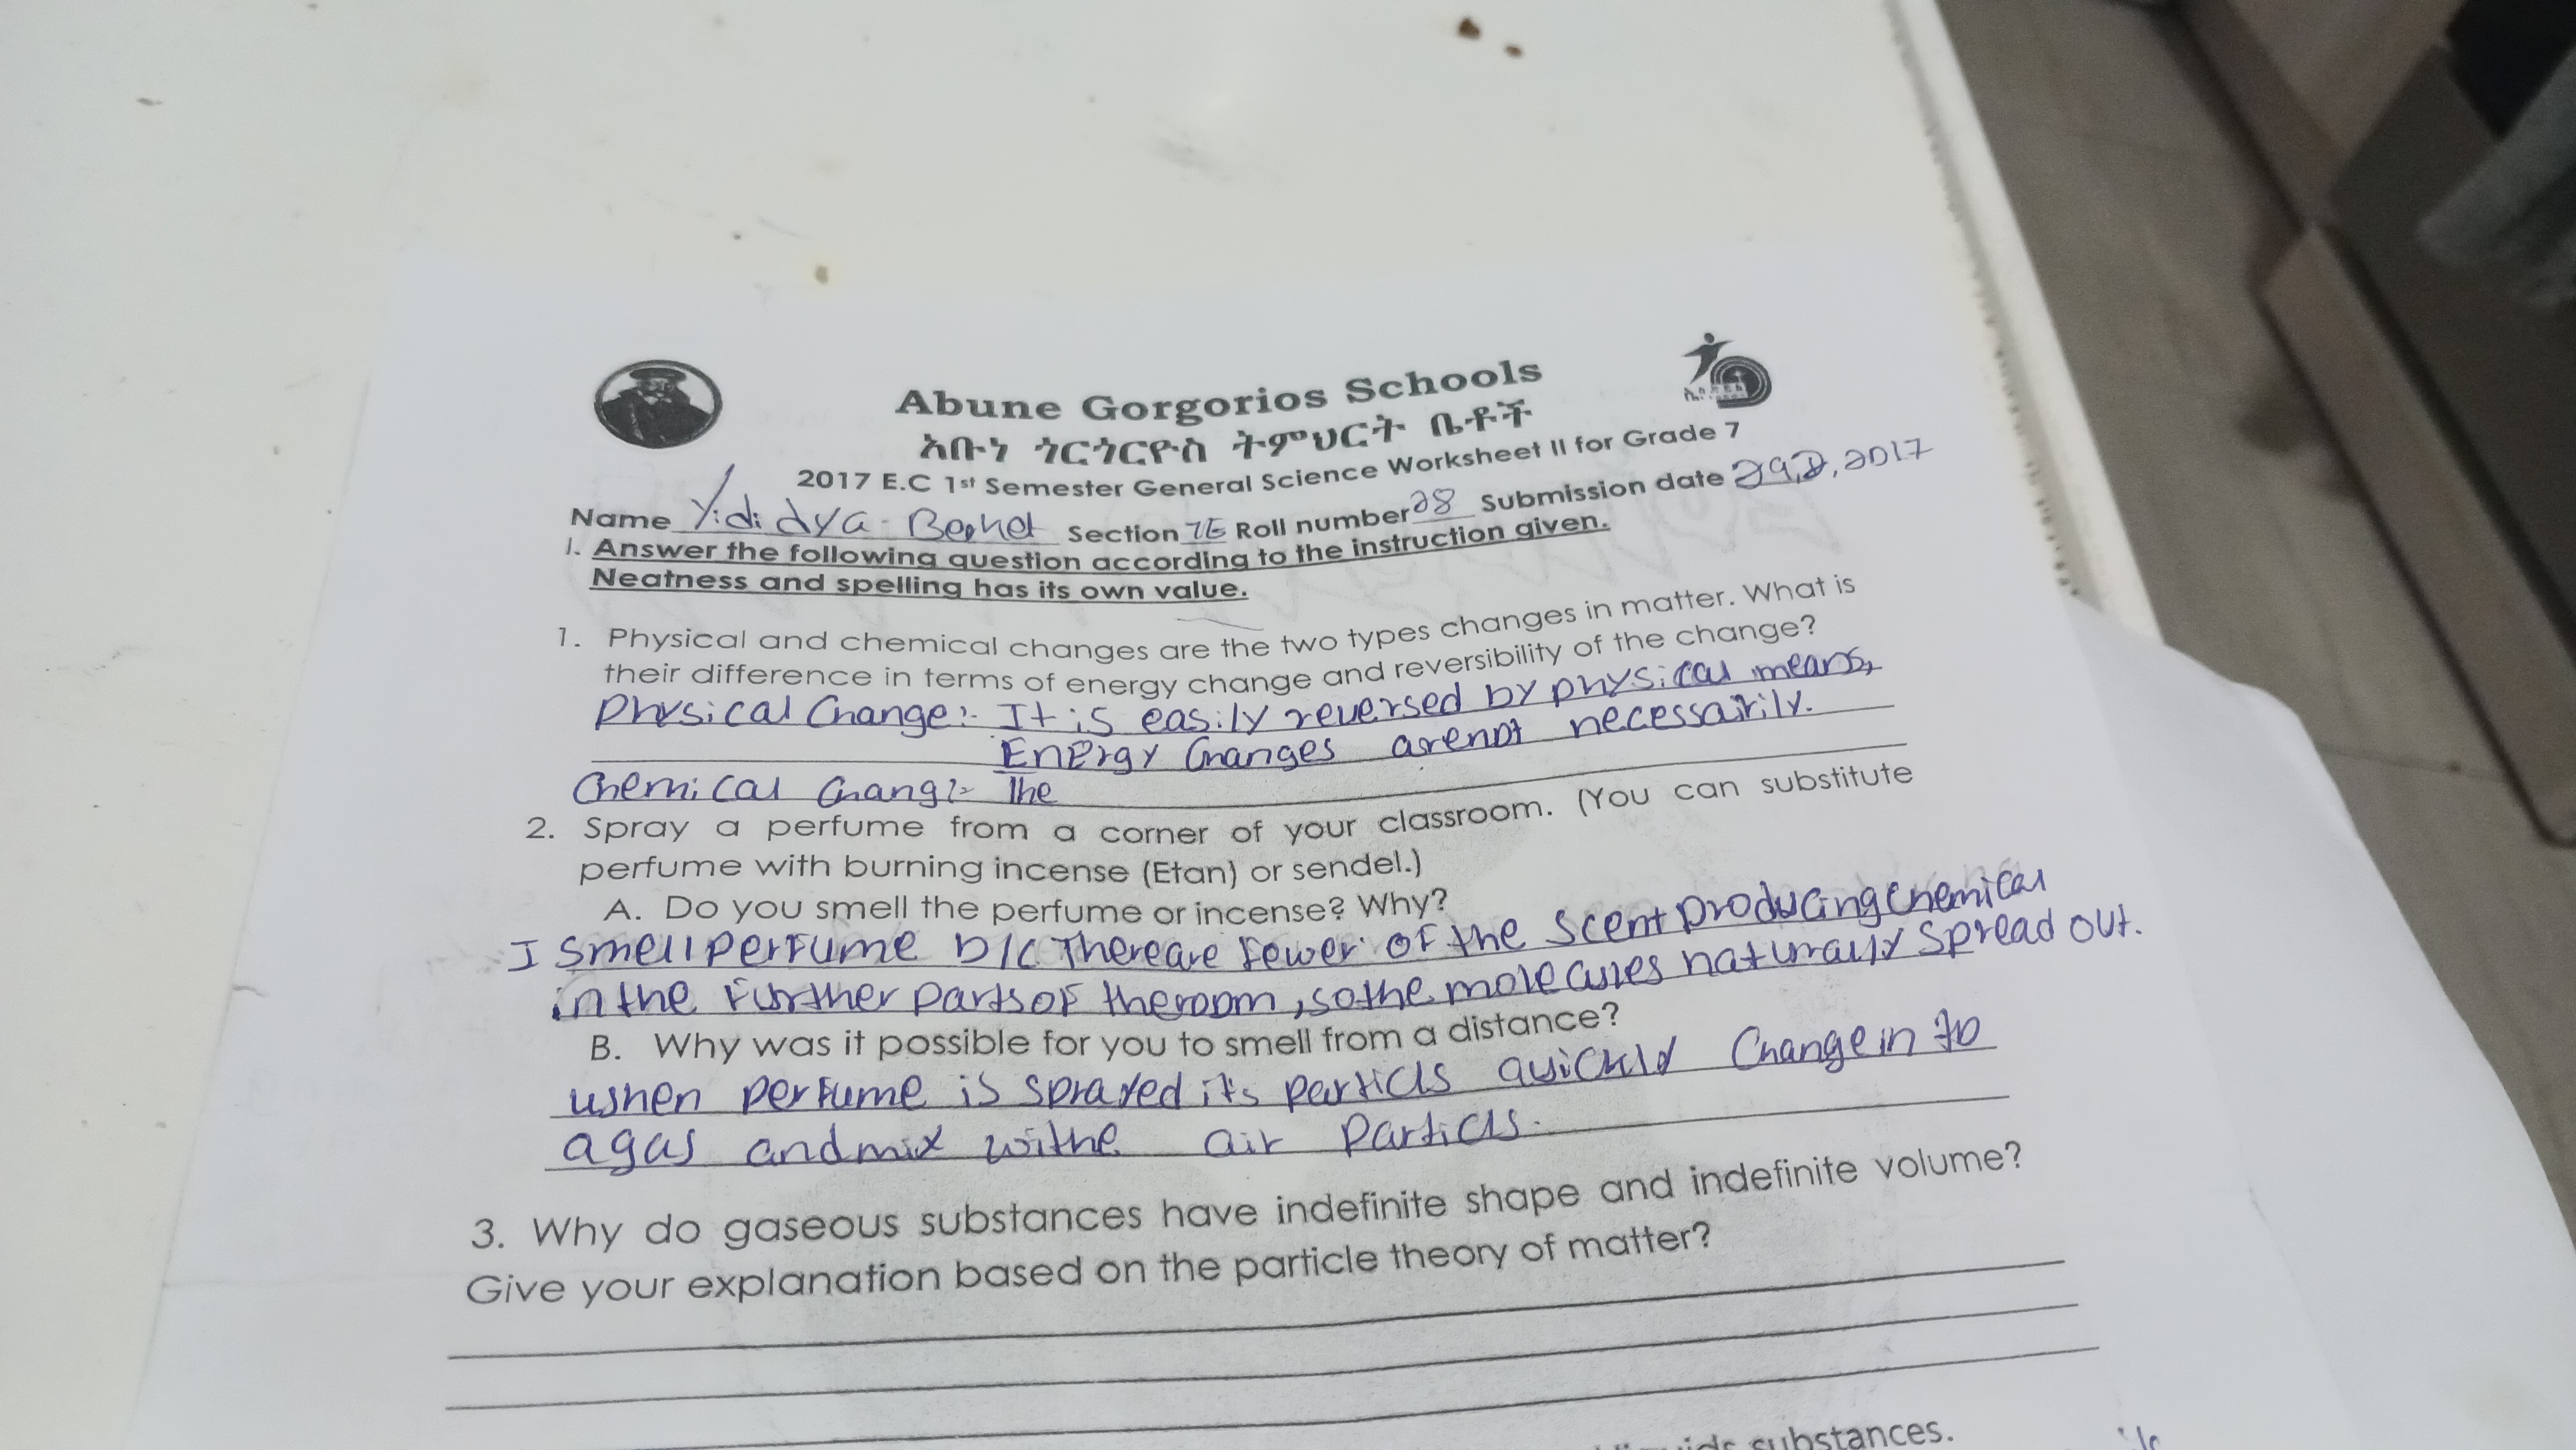 Abune Gorgorios Schools
አቡነ ጎርጎርዮስ ትምህርት ቤቶች
2017 E.C 1st Semester General Science Worksheet II for Grade 7
Name Yididya Section 7E Roll number 28 Submission date 29,2,2017
I. Answer the following question according to the instruction given.
Neatness and spelling has its own value.
1. Physical and chemical changes are the two types changes in matter. What is
their difference in terms of energy change and reversibility of the change?
Physical Change:- It is easily reversed by physical means,
Energy Changes arenot necessairily.
Chemical Chang:- The
2. Spray a perfume from a corner of your classroom. (You can substitute
perfume with burning incense (Etan) or sendel.)
A. Do you smell the perfume or incense? Why?
I smell perfume b/c There are fewer of the scent producing chemical
in the further parts of the room, so the molecules naturally spread out.
B. Why was it possible for you to smell from a distance?
when perfume is sprayed its particls quickly Change in to
a gas and mix withe air particls.
3. Why do gaseous substances have indefinite shape and indefinite volume?
Give your explanation based on the particle theory of matter?
substances.